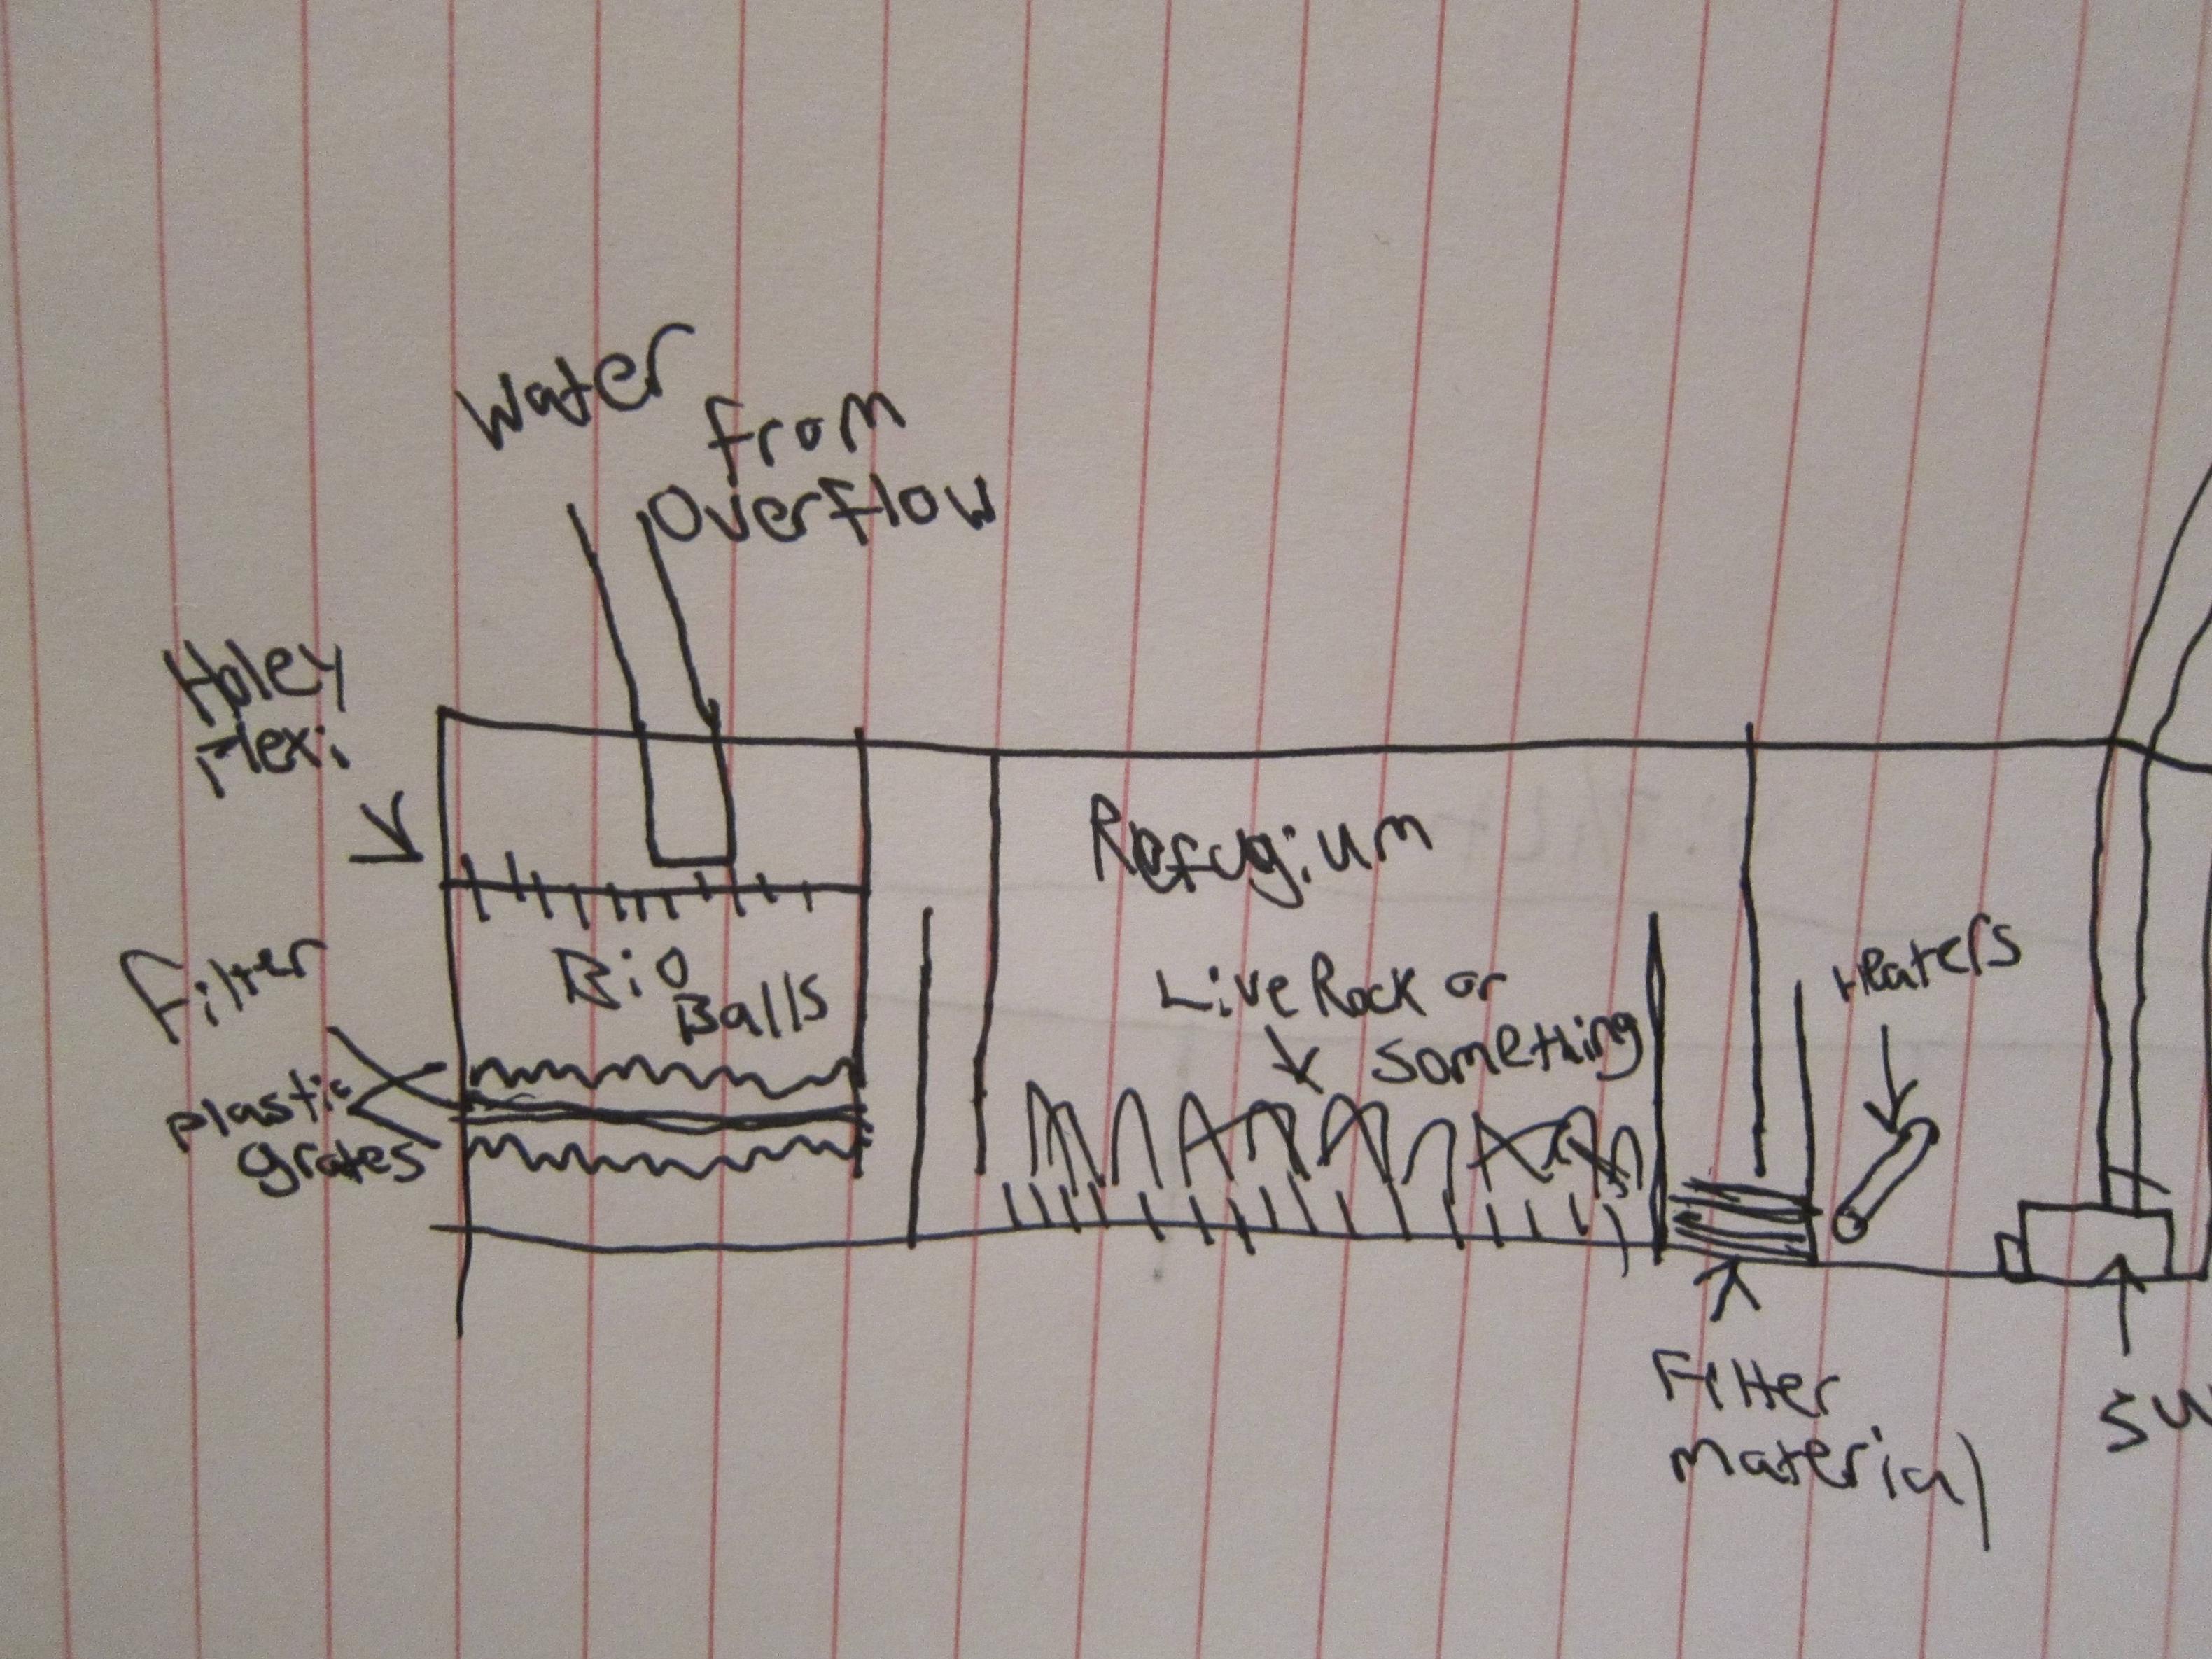 Water
from
Overflow
Holey
Plexi
Refugium
Filter
Bio
Balls
Live Rock or
something
Heaters
plastic
grates
Filter
material